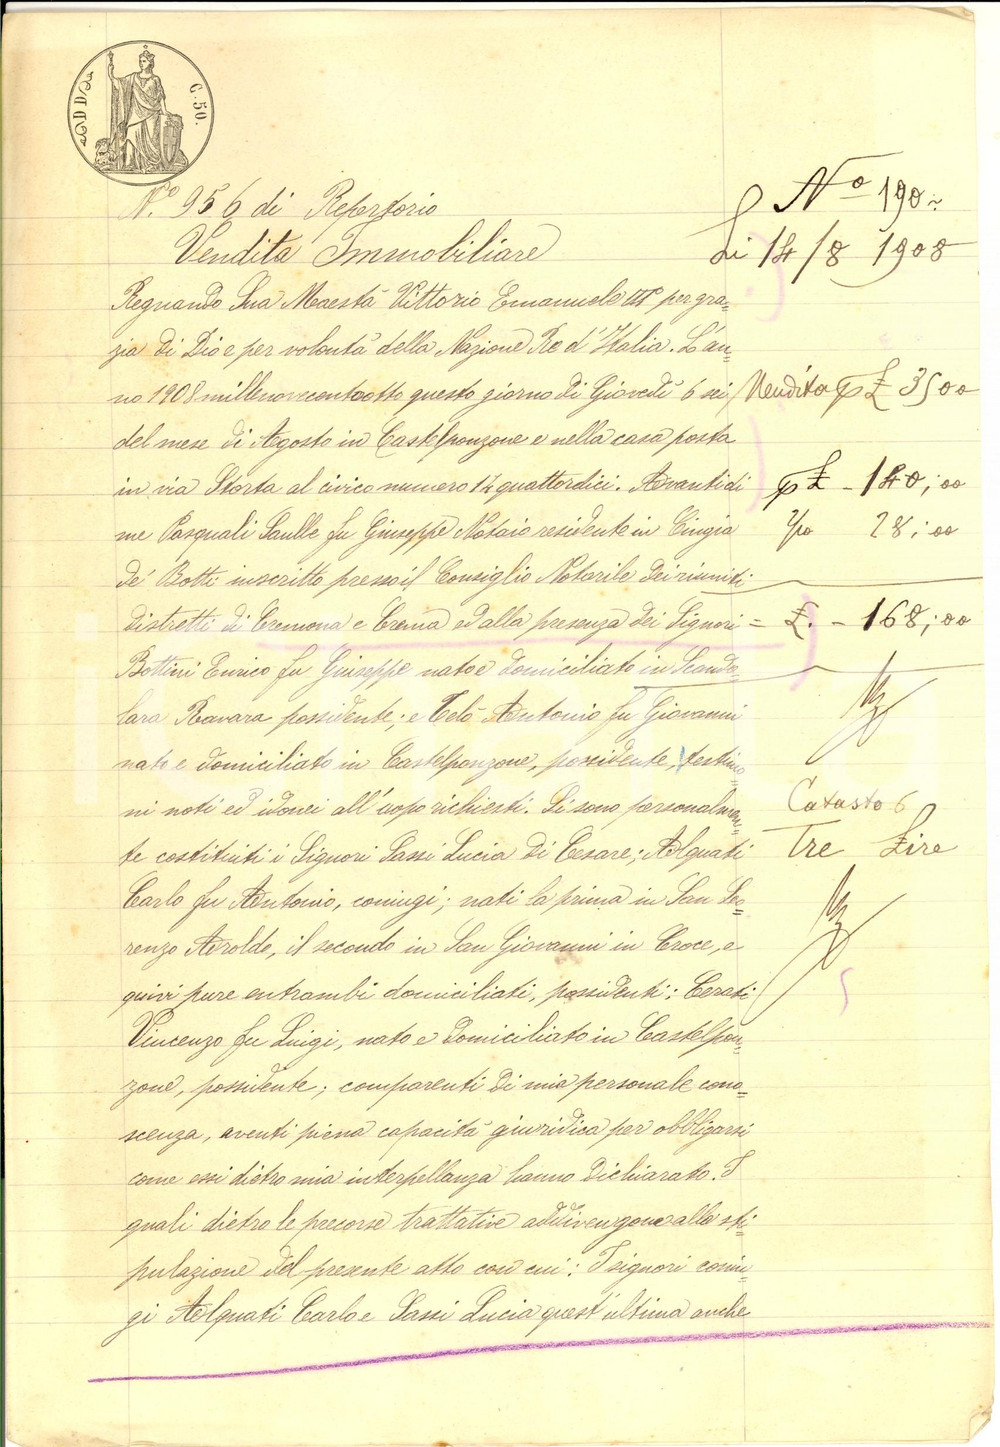 C. 50.
N.º 956 di Repertorio
Vendita Immobiliare
Nº 190
li 14/8 1908
Regnando Sua Maestà Vittorio Emanuele III° per gra=
zia di Dio e per volontà della Nazione Re d'Italia. L'an=
no 1908 millenovecentootto questo giorno di Giovedì 6 sei
Vendita p £ 3500
del mese di Agosto in Castelponzone e nella casa posta
in via Storta al civico numero 14 quattordici. Avanti di
p £ - 140,00
me Pasquali Saulle fu Giuseppe Notaio residente in Cingia
28,00
de' Botti inscritto presso il Consiglio Notarile dei riuniti
distretti di Cremona e Crema ed alla presenza dei Signori
= £. - 168,00
Bottini Enrico fu Giuseppe nato e domiciliato in Scando=
lara Ravara possidente; e Telò Antonio fu Giovanni
nato e domiciliato in Castelponzone, possidente, testimo
ni noti ed idonei all'uopo richiesti. Si sono personalmen=
Catasto 6
te costituiti i Signori Sassi Lucia di Cesare; Alquati
Tre Lire
Carlo fu Antonio, coniugi; nati la prima in San Lo=
renzo Aroldo, il secondo in San Giovanni in Croce, e
quivi pure entrambi domiciliati, possidenti; Cerati
Vincenzo fu Luigi, nato e domiciliato in Castelpon=
zone, possidente; comparenti di mia personale cono=
scenza, aventi piena capacità giuridica per obbligarsi
come essi dietro mia interpellanza hanno dichiarato. I
quali dietro le precorse trattative addivengono alla sti=
pulazione del presente atto con cui: I signori coniu=
gi Alquati Carlo e Sassi Lucia quest'ultima anche